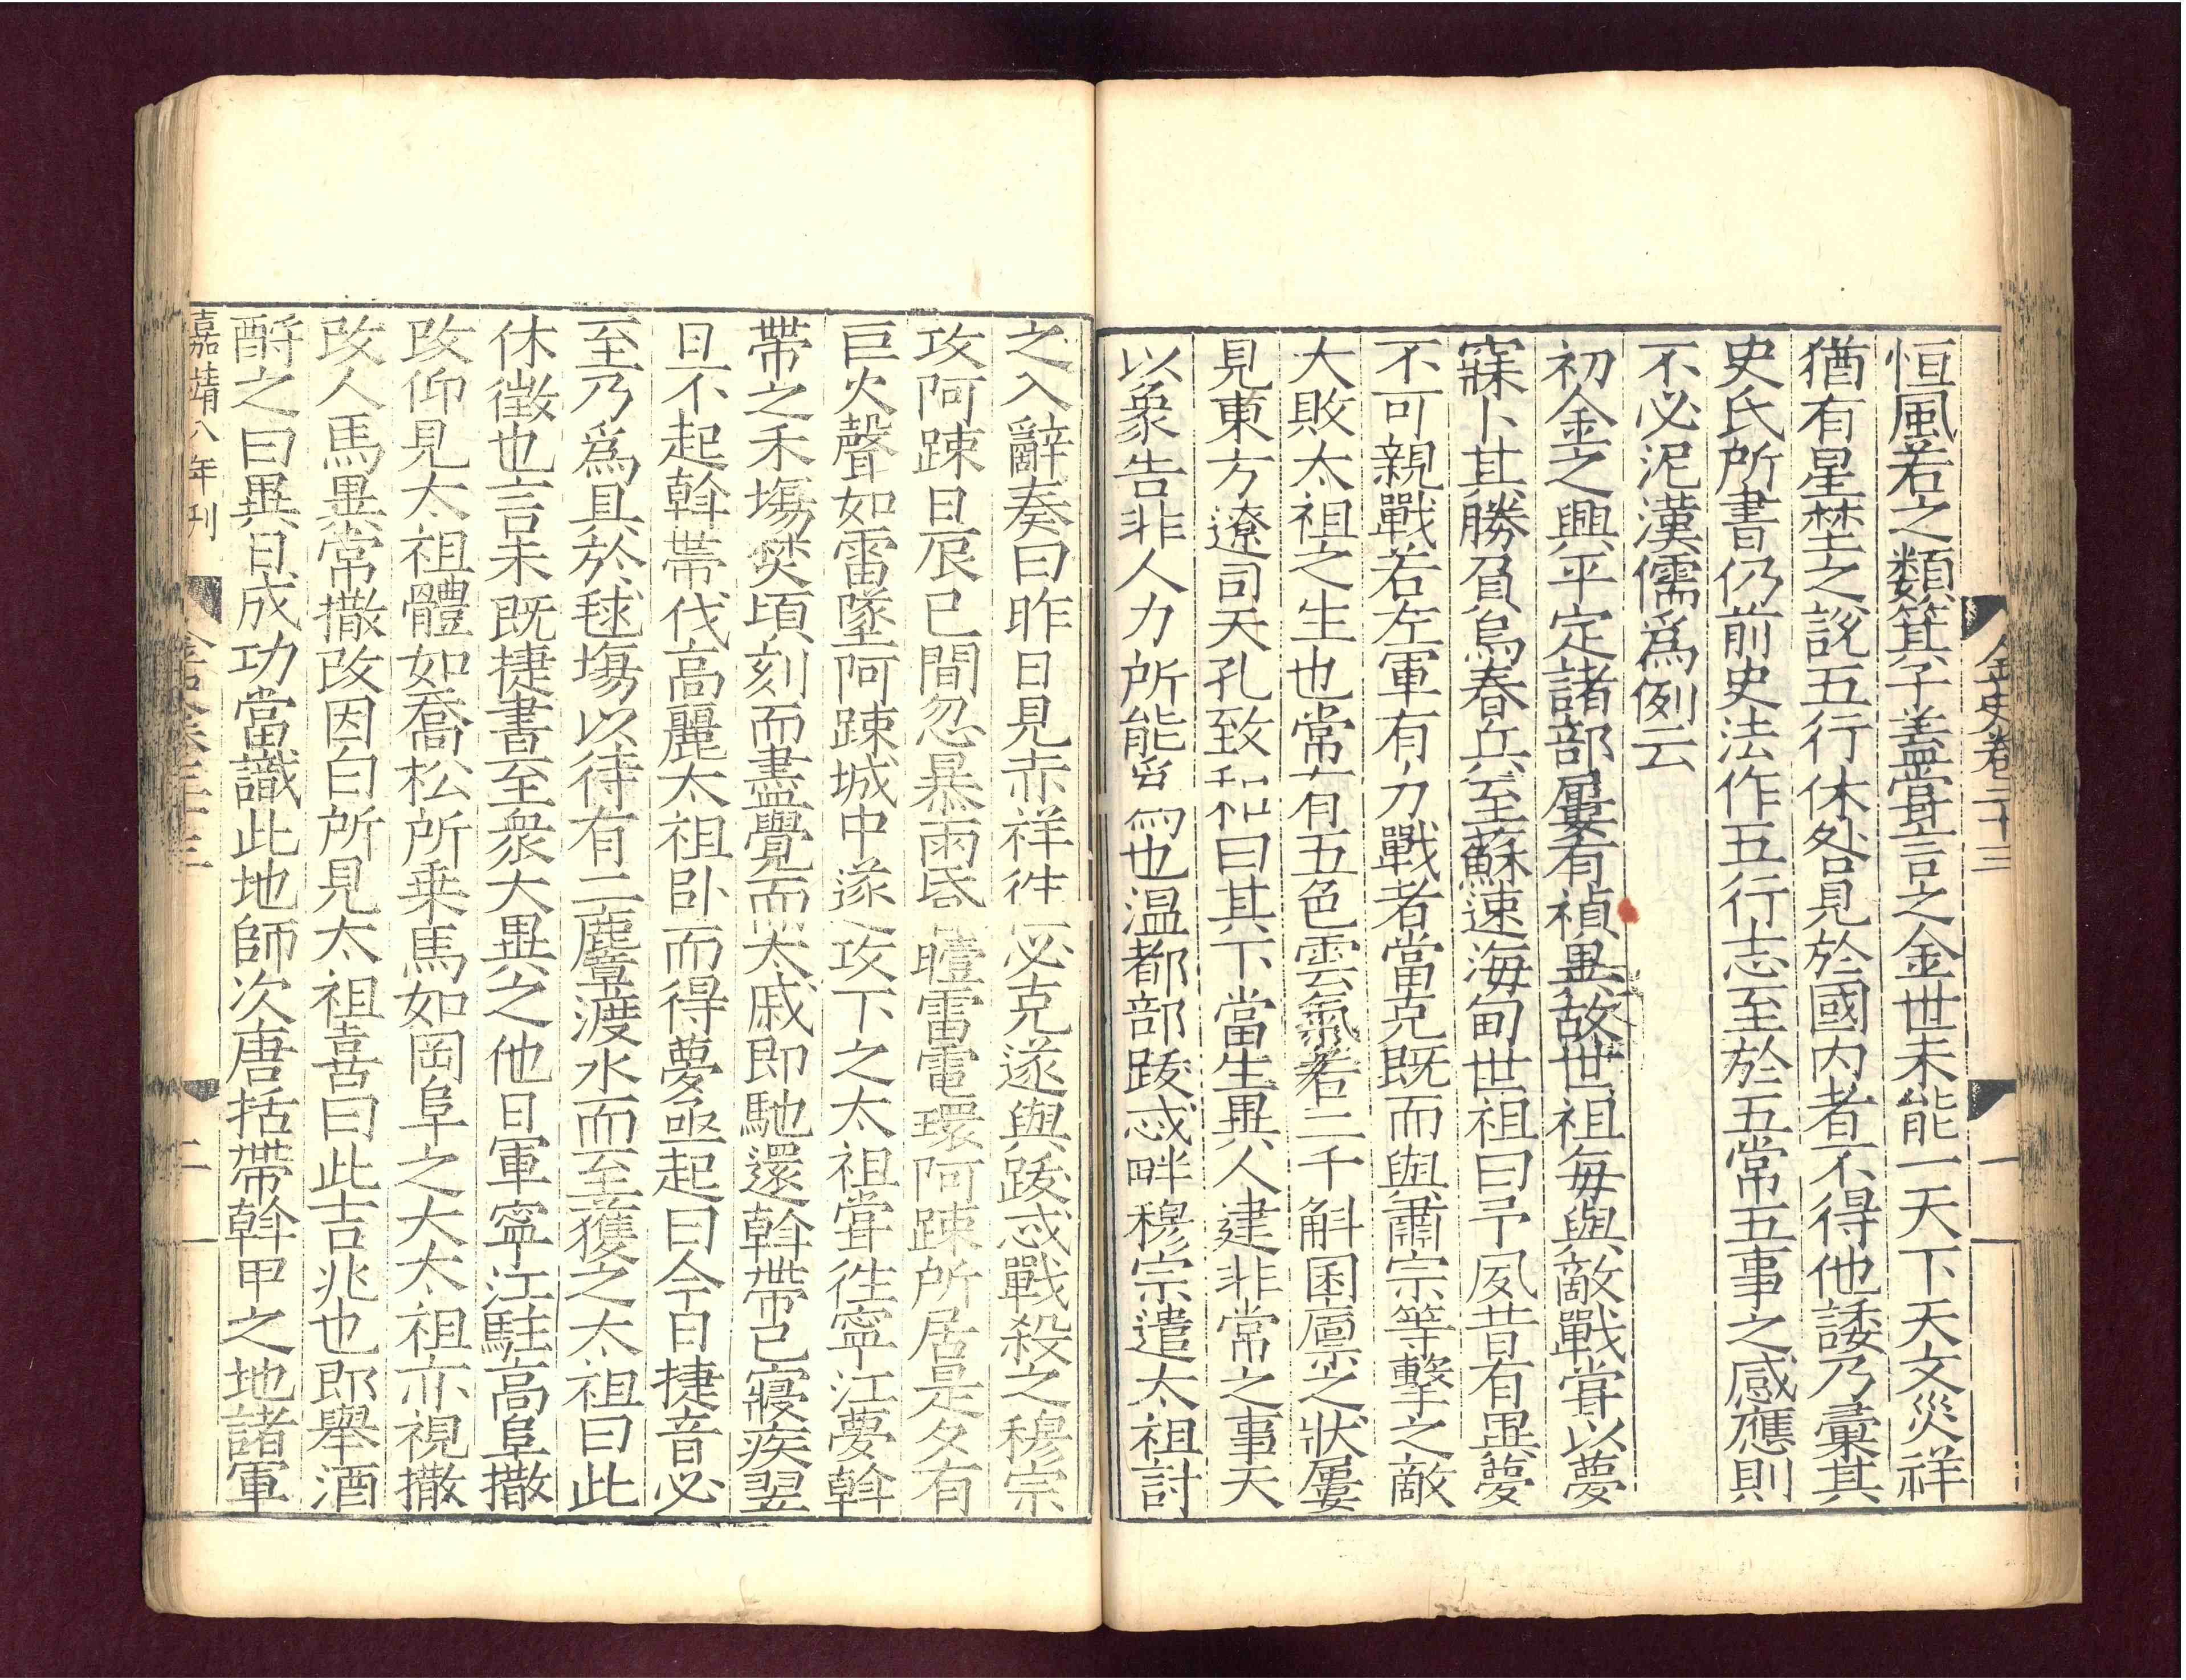 金史卷二十三
一
恒風若之類箕子蓋嘗言之金世未能一天下天文災祥
猶有星埜之説五行休咎見於國内者不得他諉乃彚其
史氏所書仍前史法作五行志至於五常五事之感應則
不必泥漢儒爲例云
初金之興平定諸部屢有禎異故世祖每與敵戰甞以夢
寐卜其勝負烏春兵至蘇速海甸世祖曰予夙昔有異夢
不可親戰若左軍有力戰者當克既而與肅宗等擊之敵
大敗太祖之生也常有五色雲氣若二千斛囷廩之狀屢
見東方遼司天孔致和曰其下當生異人建非常之事天
以象告非人力所能爲也温都部跋忒畔穆宗遣太祖討
之入辭奏曰昨日見赤祥往必克遂與跋忒戰殺之穆宗
攻阿踈日辰巳間忽暴雨昏曀雷電環阿踈所居是夕有
巨火聲如雷墜阿踈城中遂攻下之太祖甞往寧江夢斡
帶之禾塲焚頃刻而盡覺而大戚即馳還斡帶已寢疾翌
日不起斡帶伐高麗太祖卧而得夢亟起曰今日捷音必
至乃爲具於毬塲以待有二麞渡水而至獲之太祖曰此
休徵也言未既捷書至衆大異之他日軍寧江駐高阜撒
改仰見太祖體如喬松所乗馬如岡阜之大太祖亦視撒
改人馬異常撒改因白所見太祖喜曰此吉兆也即舉酒
酹之曰異日成功當識此地師次唐括帶斡甲之地諸軍
嘉靖八年刊
金史卷二十三
二